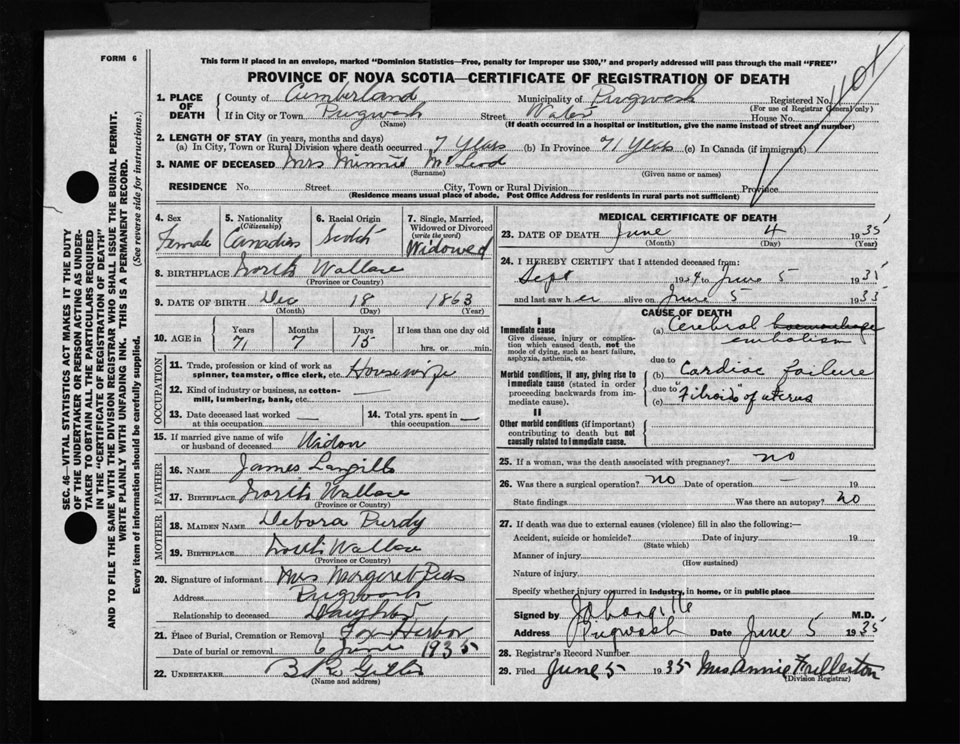 FORM 6
This form if placed in an envelope, marked "Dominion Statistics—Free, penalty for improper use $300," and properly addressed will pass through the mail "FREE"
PROVINCE OF NOVA SCOTIA—CERTIFICATE OF REGISTRATION OF DEATH
SEC. 46—VITAL STATISTICS ACT MAKES IT THE DUTY
OF THE UNDERTAKER OR PERSON ACTING AS UNDER-
TAKER TO OBTAIN ALL THE PARTICULARS REQUIRED
IN THE "CERTIFICATE OF REGISTRATION OF DEATH"
AND TO FILE THE SAME WITH THE DIVISION REGISTRAR WHO SHALL ISSUE THE BURIAL PERMIT.
WRITE PLAINLY WITH UNFADING INK. THIS IS A PERMANENT RECORD.
Every item of information should be carefully supplied. (See reverse side for instructions.)
1. PLACE OF DEATH
County of Cumberland Municipality of Pugwash Registered No.
(For use of Registrar General only)
If in City or Town Pugwash Street Water House No.
(Name) (If death occurred in a hospital or institution, give the name instead of street and number)
2. LENGTH OF STAY (in years, months and days)
(a) In City, Town or Rural Division where death occurred 7 Years (b) In Province 71 Years (c) In Canada (if immigrant)
3. NAME OF DECEASED Mrs Minnie McLeod
(Surname) (Given name or names)
RESIDENCE No. Street City, Town or Rural Division Province
(Residence means usual place of abode. Post Office Address for residents in rural parts not sufficient)
4. Sex Female
5. Nationality (Citizenship) Canadian
6. Racial Origin Scotch
7. Single, Married, Widowed or Divorced (write the word) Widowed
8. BIRTHPLACE North Wallace
(Province or Country)
9. DATE OF BIRTH Dec 18 1863
(Month) (Day) (Year)
10. AGE in Years 71 Months 7 Days 15 If less than one day old hrs. or min.
OCCUPATION
11. Trade, profession or kind of work as spinner, teamster, office clerk, etc. Housewife
12. Kind of industry or business, as cotton-mill, lumbering, bank, etc. —
13. Date deceased last worked at this occupation —
14. Total yrs. spent in this occupation —
15. If married give name of wife or husband of deceased Widow
FATHER
16. NAME James Langille
17. BIRTHPLACE North Wallace
(Province or Country)
MOTHER
18. MAIDEN NAME Debora Purdy
19. BIRTHPLACE North Wallace
(Province or Country)
20. Signature of informant Mrs Margaret
Address Pugwash
Relationship to deceased Daughter
21. Place of Burial, Cremation or Removal Fox Harbor
Date of burial or removal 6 June 1935
22. UNDERTAKER
(Name and address)
MEDICAL CERTIFICATE OF DEATH
23. DATE OF DEATH June 4 1935
(Month) (Day) (Year)
24. I HEREBY CERTIFY that I attended deceased from:
Sept 1934 to June 5 1935
and last saw her alive on June 5 1935
CAUSE OF DEATH
I
Immediate cause
Give disease, injury or complication which caused death, not the mode of dying, such as heart failure, asphyxia, asthenia, etc.
(a) Cerebral haemorrhage embolism
due to
Morbid conditions, if any, giving rise to immediate cause (stated in order proceeding backwards from immediate cause).
(b) Cardiac failure
due to
(c) "Fibroids" of uterus
II
Other morbid conditions (if important) contributing to death but not causally related to immediate cause.
25. If a woman, was the death associated with pregnancy? no
26. Was there a surgical operation? no Date of operation — 19
State findings Was there an autopsy? no
27. If death was due to external causes (violence) fill in also the following:—
Accident, suicide or homicide? Date of injury 19
(State which)
Manner of injury
(How sustained)
Nature of injury
Specify whether injury occurred in industry, in home, or in public place
Signed by Langille M.D.
Address Pugwash Date June 5 1935
28. Registrar's Record Number
29. Filed June 5 1935 Mrs Annie Fullerton
(Division Registrar)